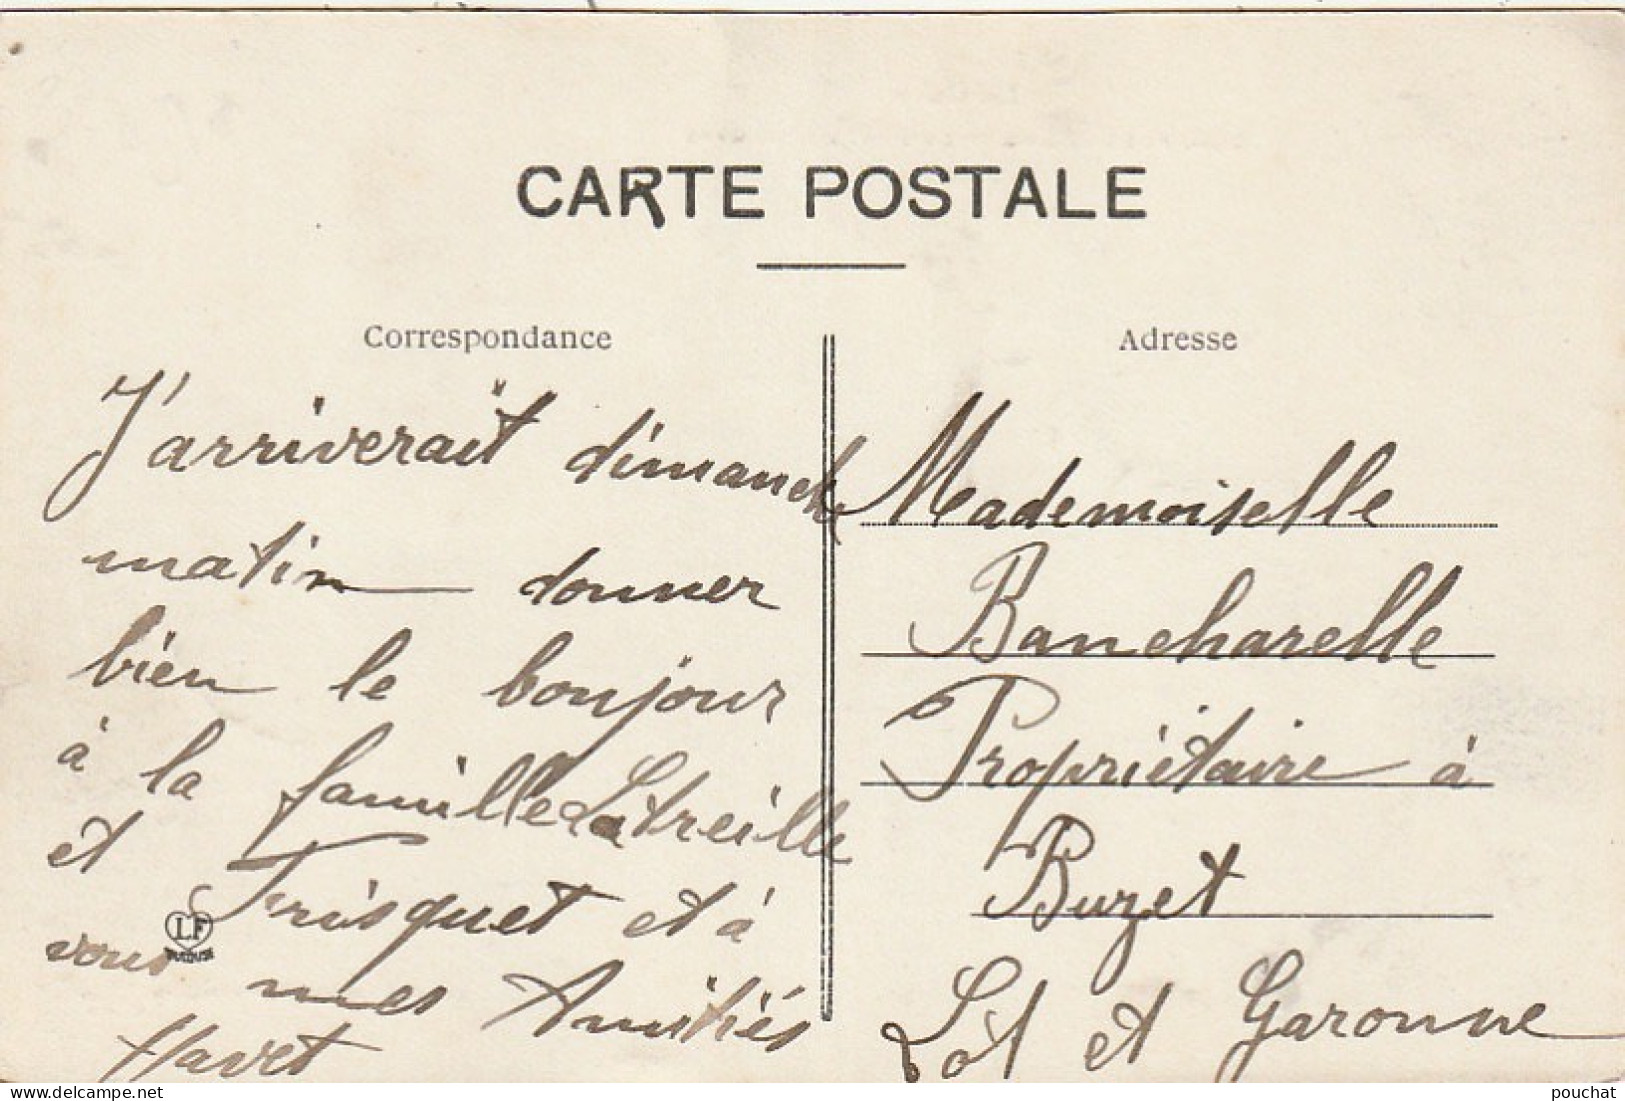 CARTE POSTALE
Correspondance
J'arriverait dimanche
matin donner
bien le bonjour
à la famille Latreille
et Frisquet et à
vous mes Amitiés
Havet
LF
TOULOUSE
Adresse
Mademoiselle
Bancharelle
Propriétaire à
Buzet
Lot et Garonne
pouchat